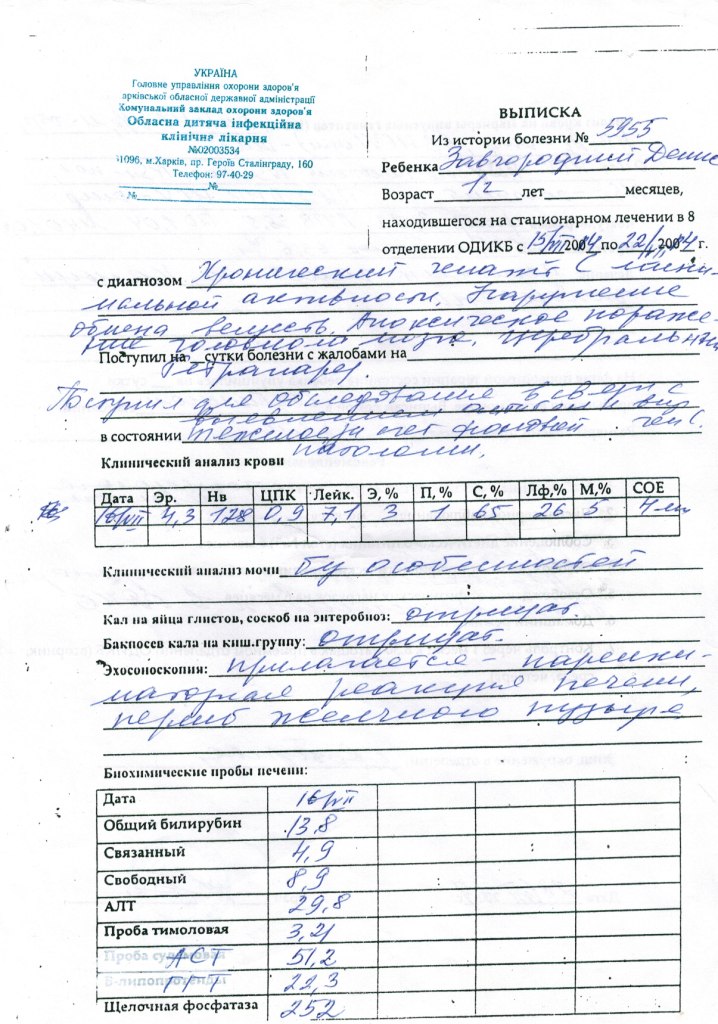 УКРАЇНА
Головне управління охорони здоров'я
арківської обласної державної адміністрації
Комунальний заклад охорони здоров'я
Обласна дитяча інфекційна
клінічна лікарня
№02003534
61096, м.Харків, пр. Героїв Сталінграду, 160
Телефон: 97-40-29
№
№
ВЫПИСКА
Из истории болезни № 5955
Ребенка Завгородний Денис
Возраст 12 лет месяцев,
находившегося на стационарном лечении в 8
отделении ОДИКБ с 15/VII 2004 по 22/VII 2004 г.
с диагнозом Хронический гепатит с мини-
мальной активности. Нарушение
обмена веществ. Аноксическое пораже-
ние головного мозга, церебральный
Поступил на сутки болезни с жалобами на
тетрапарез.
Поступил для обследования в связи с
выявлением антител к
в состоянии тяжелом за счет фоновой
патологии.
Клинический анализ крови
Дата Эр. Нв ЦПК Лейк. Э, % П, % С, % Лф,% М,% СОЕ
16/VII 4,3 128 0,9 7,1 3 1 65 26 5 4 мм
Клинический анализ мочи б/у особенностей
Кал на яйца глистов, соскоб на энтеробиоз: отрицат.
Бакпосев кала на киш.группу: отрицат.
Эхосоноскопии: прилагается – паренхи-
матозная реакция печени,
перегиб желчного пузыря
Биохимические пробы печени:
Дата 16/VII
Общий билирубин 13,8
Связанный 4,9
Свободный 8,9
АЛТ 29,8
Проба тимоловая 3,21
Проба сулемовая АСТ 51,2
Б-липопротеиды ГГТ 22,3
Щелочная фосфатаза 252